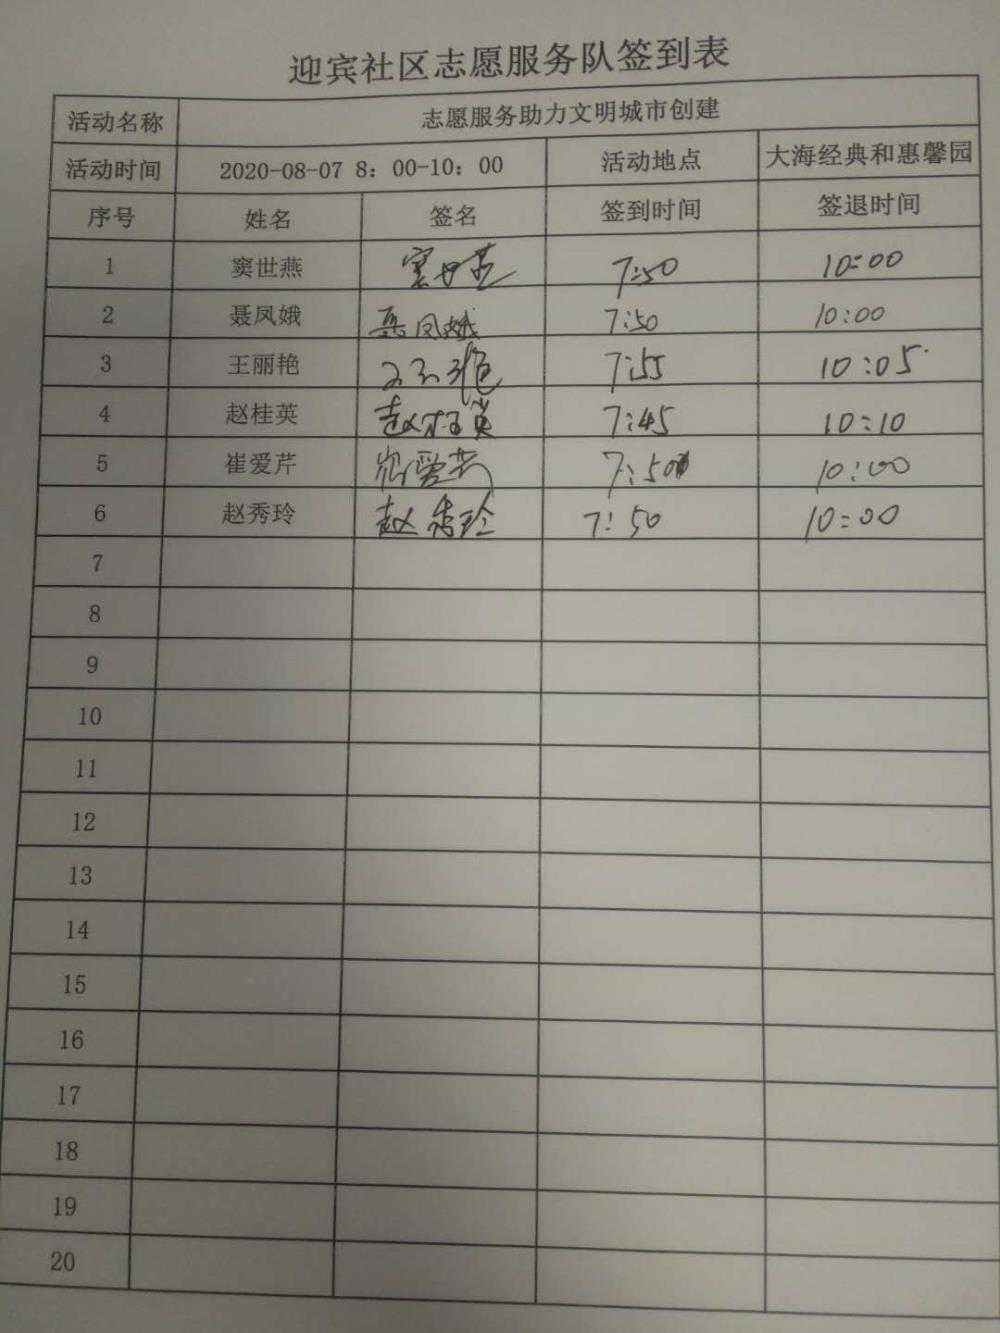 迎宾社区志愿服务队签到表
活动名称 志愿服务助力文明城市创建
活动时间 2020-08-07 8：00-10：00 活动地点 大海经典和惠馨园
序号 姓名 签名 签到时间 签退时间
1 窦世燕 窦世燕 7:50 10:00
2 聂凤娥 聂凤娥 7:50 10:00
3 王丽艳 7:55 10:05
4 赵桂英 赵桂英 7:45 10:10
5 崔爱芹 崔爱芹 7:50 10:00
6 赵秀玲 赵秀玲 7:50 10:00
7
8
9
10
11
12
13
14
15
16
17
18
19
20